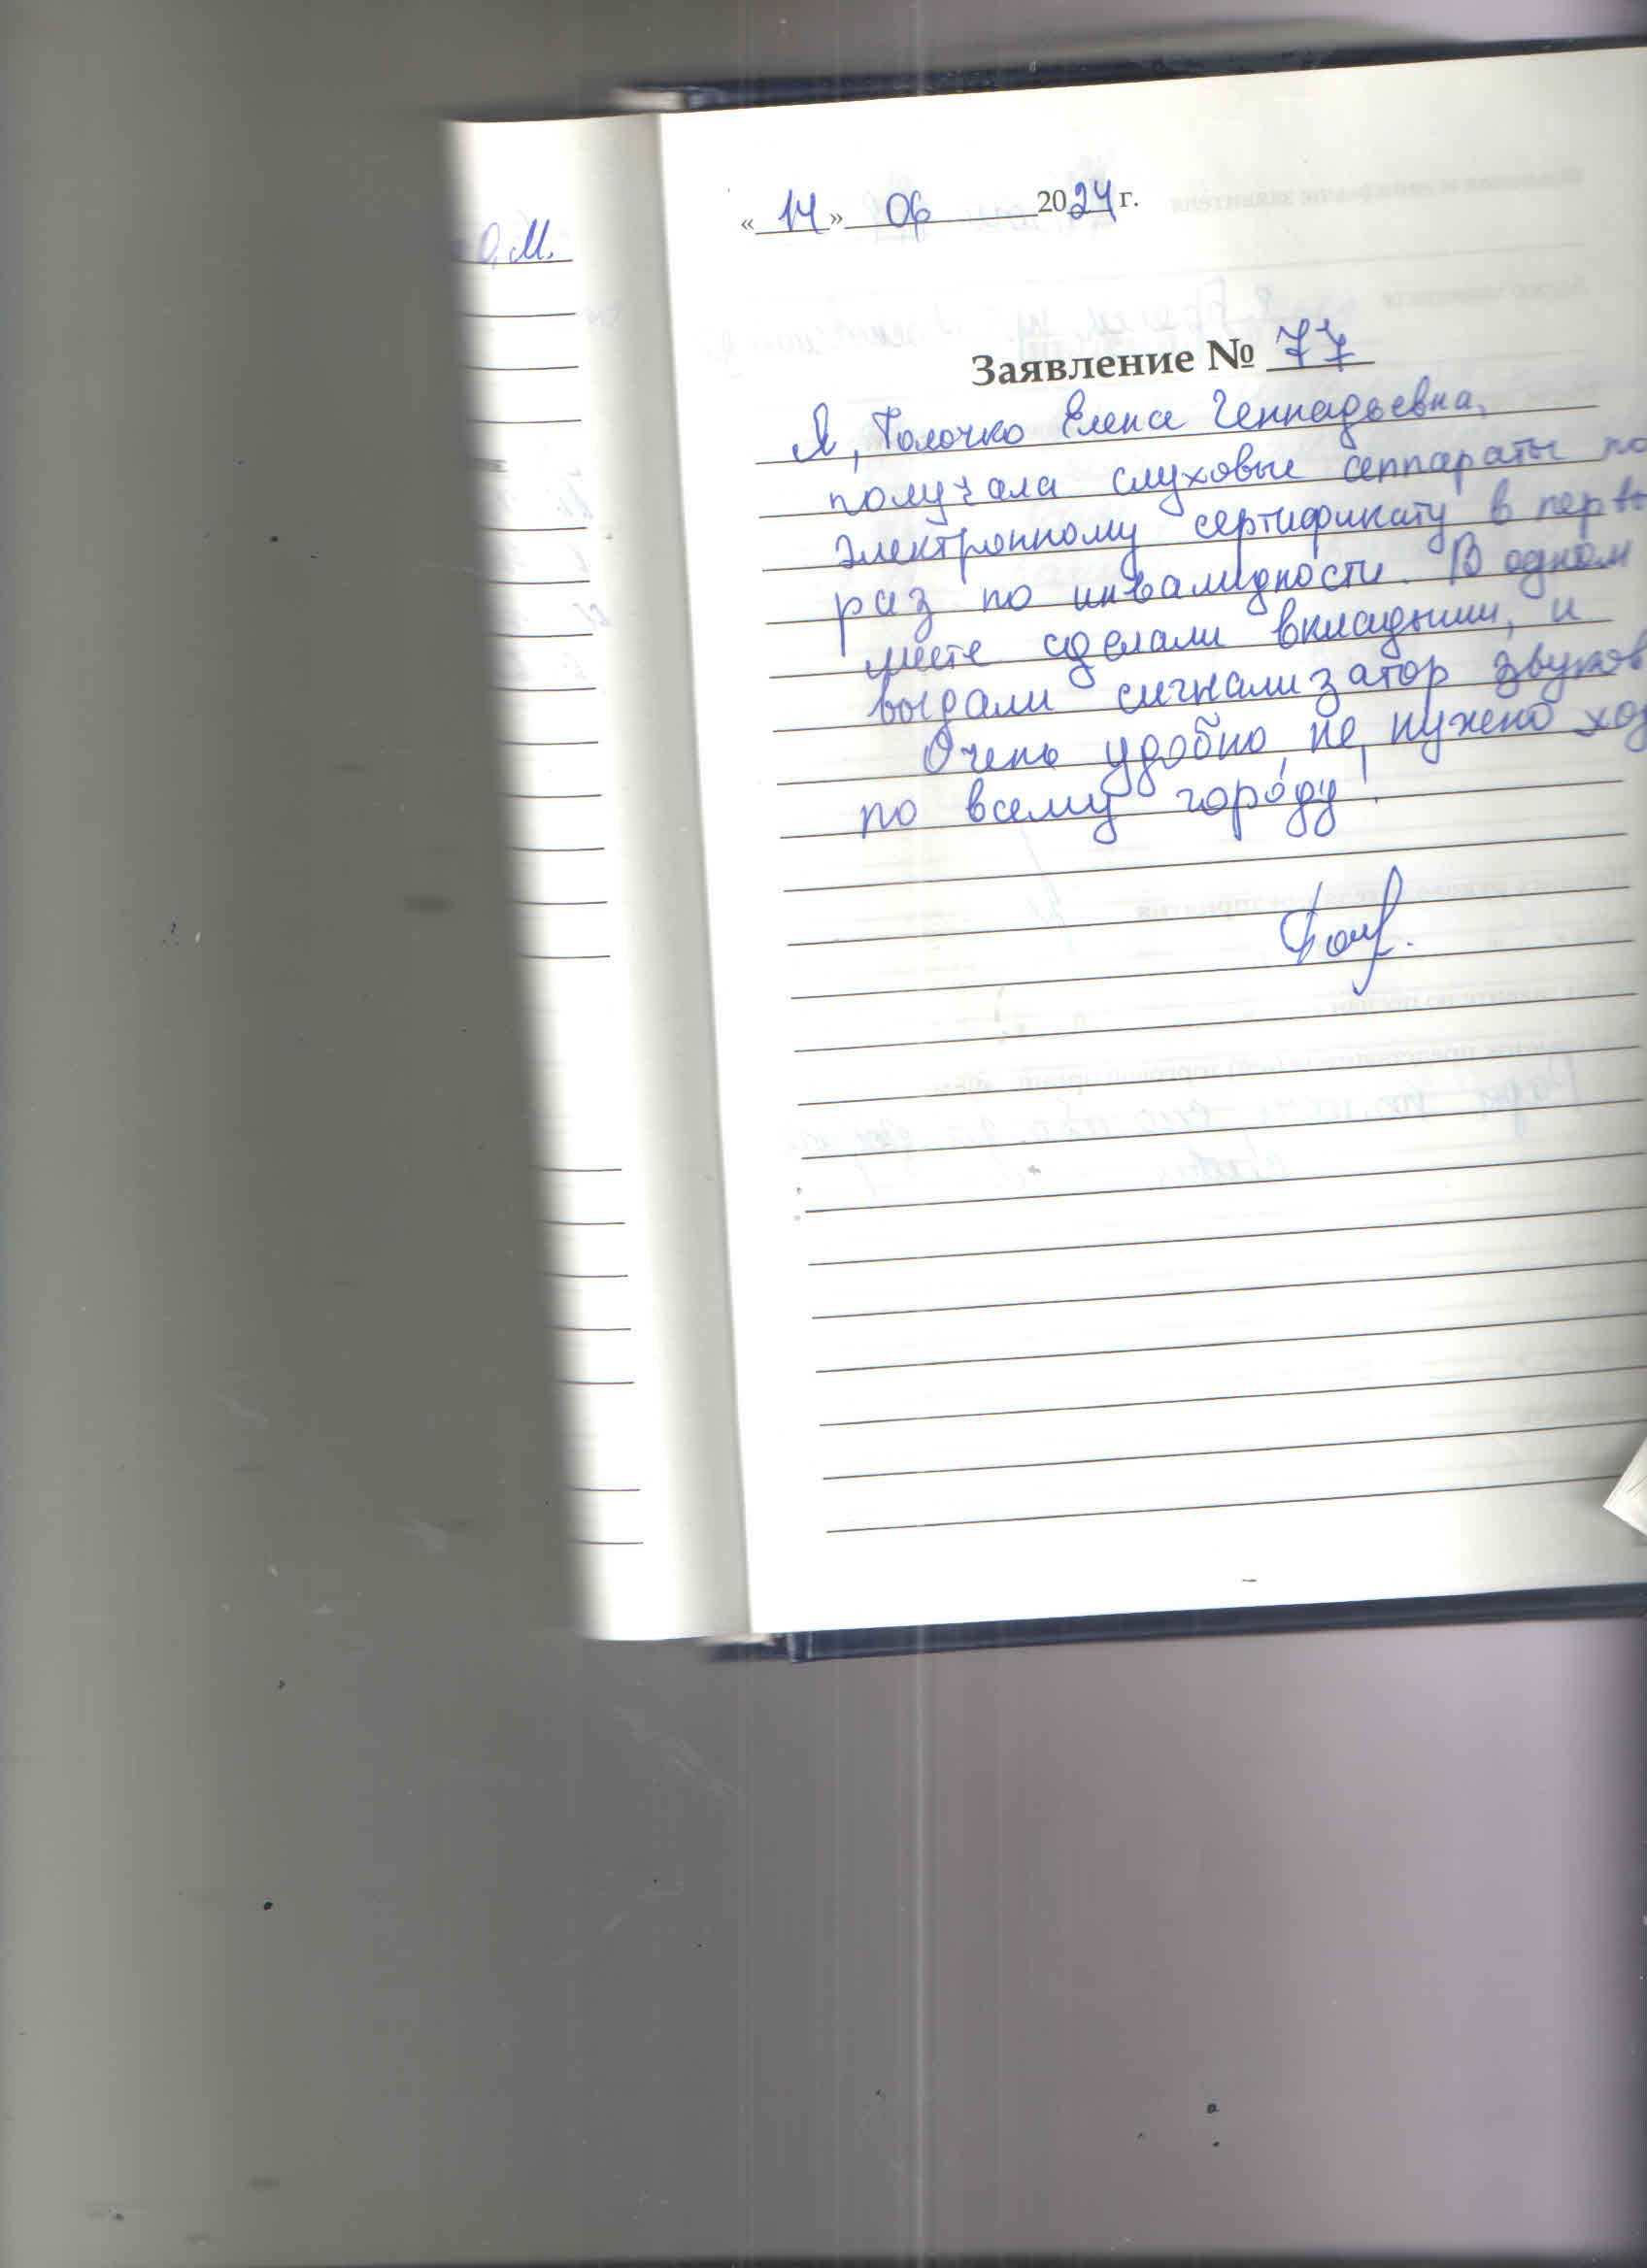 О.М.
«14» 06 2024 г.
Заявление № 77
Я, Толочко Елена Геннадьевна,
получала слуховые аппараты по
электронному сертификату в первы
раз по инвалидности. В одном
месте сделали вкладыши, и
выдали сигнализатор звуков
Очень удобно, не нужено ход
по всему городу!